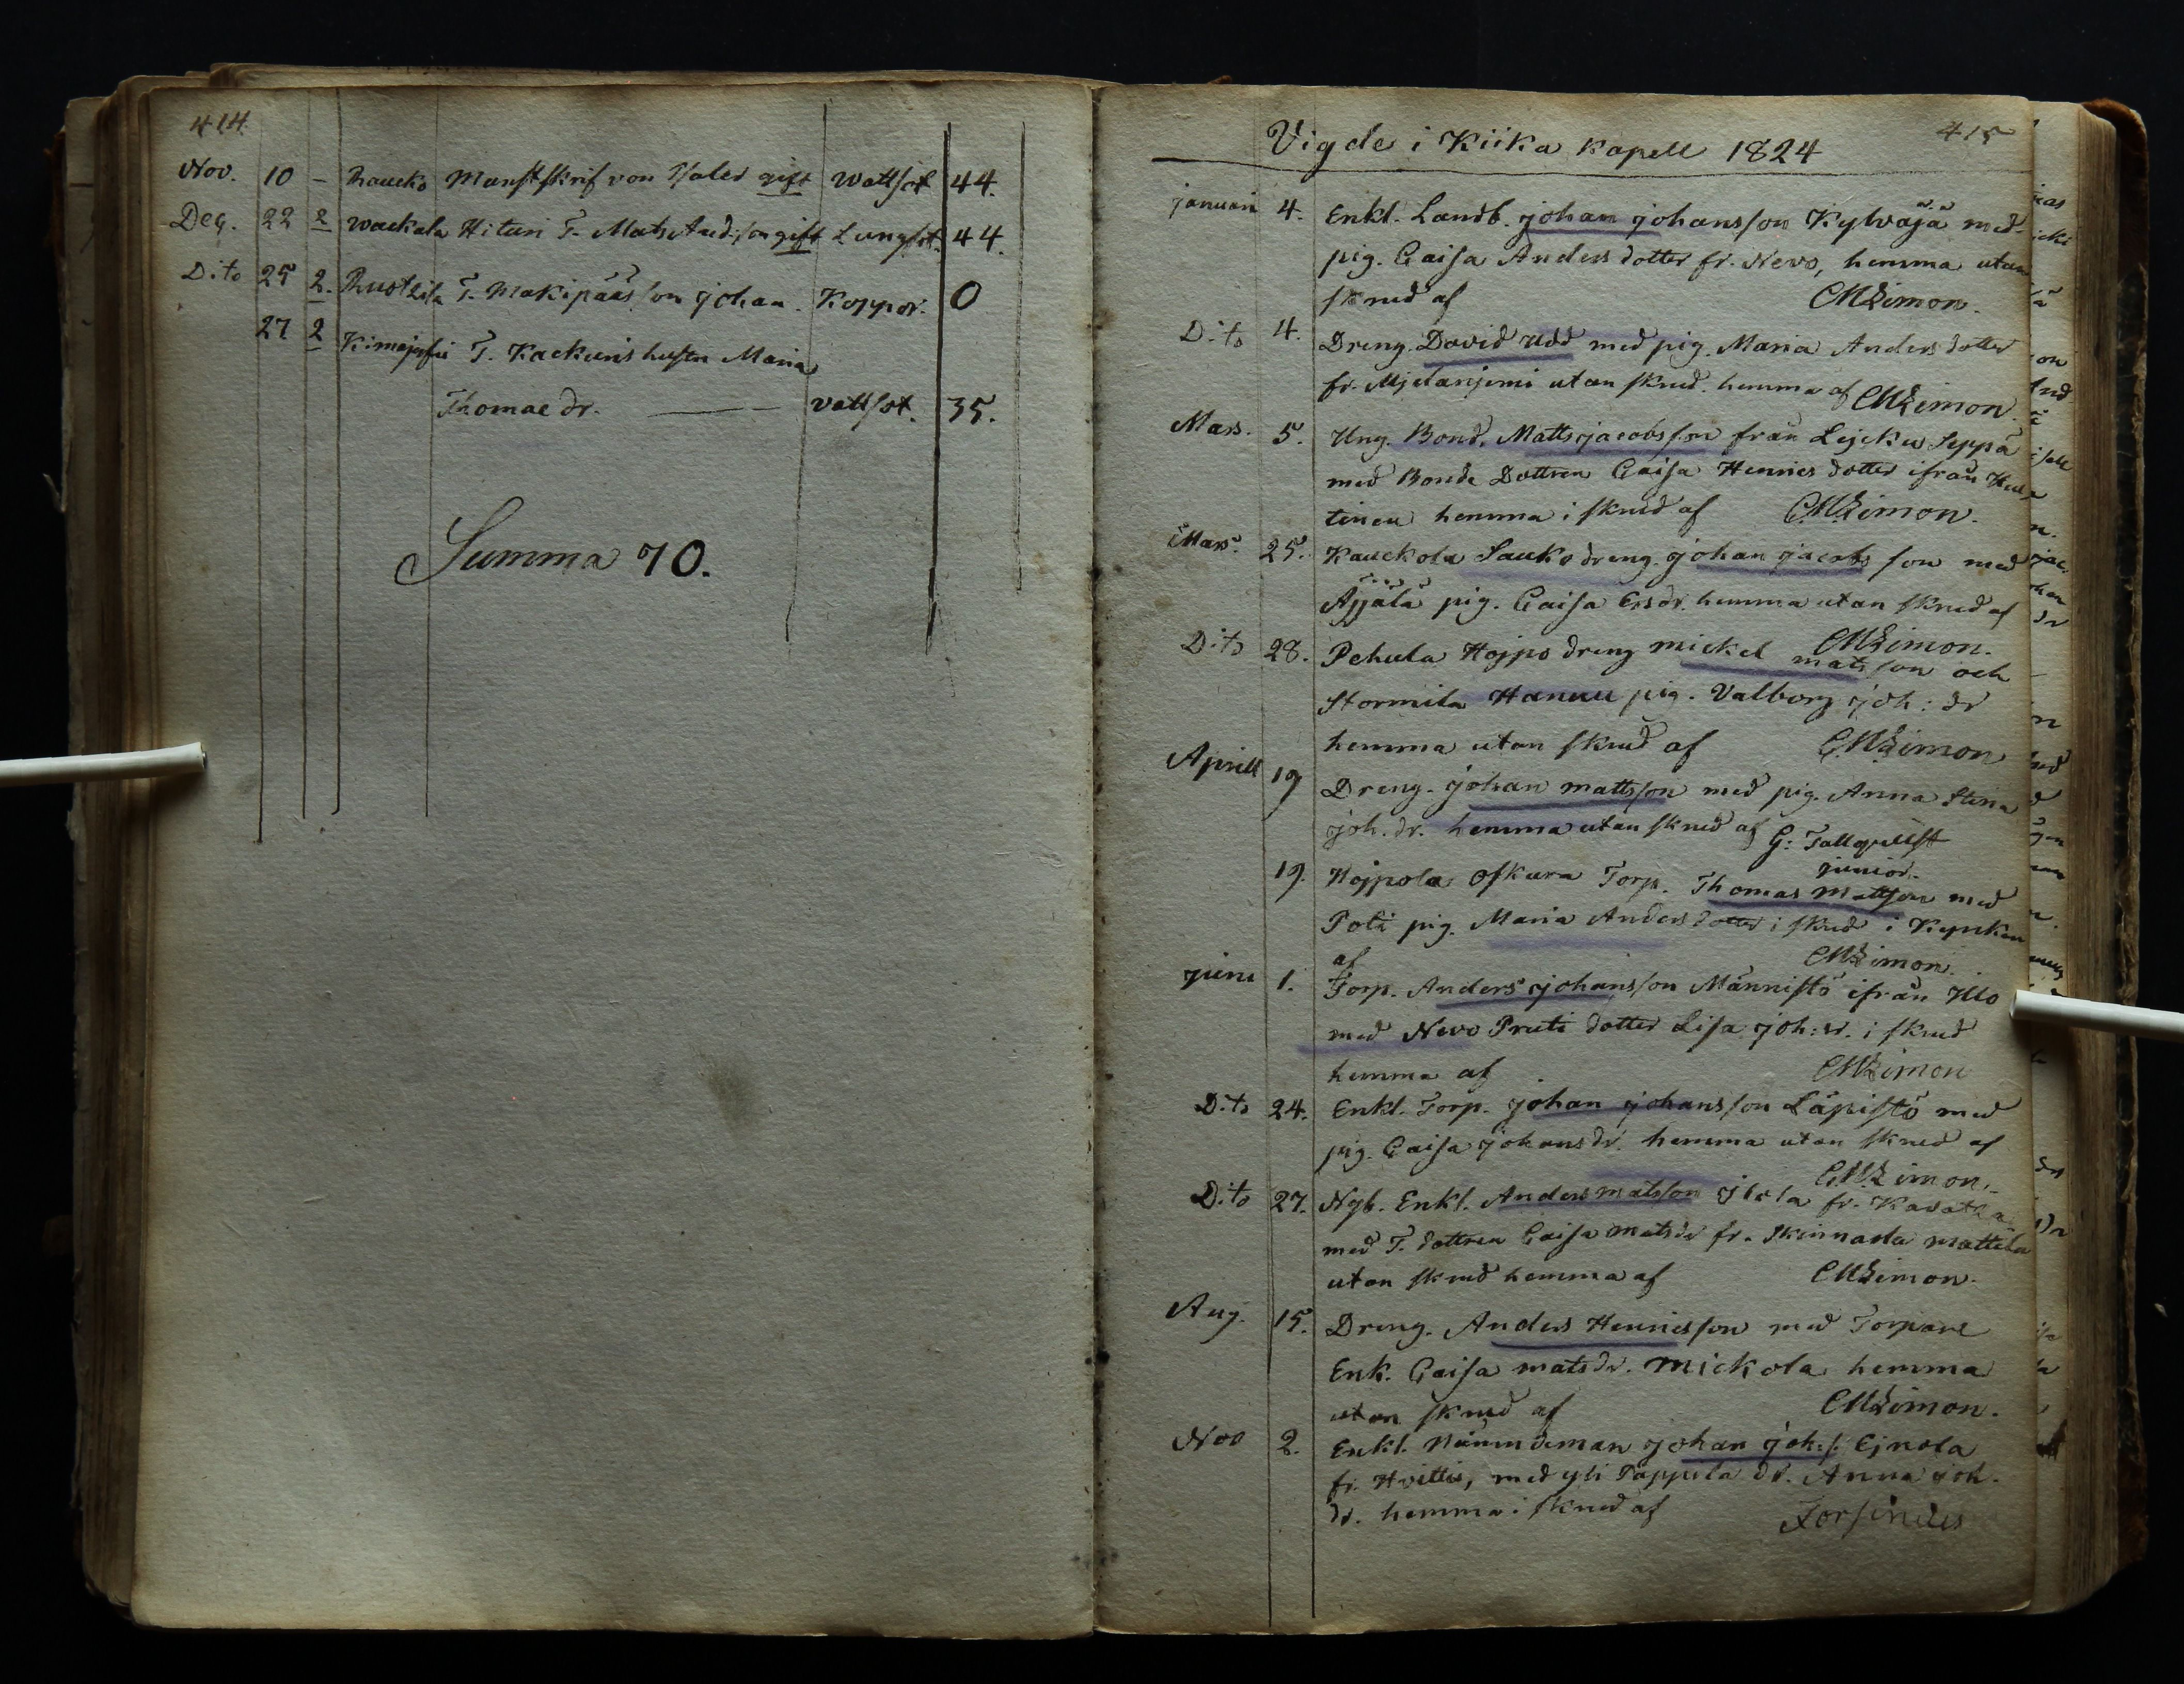 414
Nov. 10 – Raucko Manstskrif von Thaler gift Wattsot 44.
Dec. 22 2 Wackala Hituri T. Mats And.son gift Lungsot. 44.
Dito 25 2. T. Makipääs son Johan. Koppor. 0
27 2 T. Kackuris hustru Maria
Thomae dr. — vattsot. 35.
Summa 70.
415
Vigde i Kiika kapell 1824
januari 4. Enkl. Landb. johan johansson Kylväjä med
pig. Caisa Anders dotter fr. Nevo, hemma utan
skrud af CMLimon.
Dito 4. Dreng. David Udd med pig. Maria Anders dotter
fr. utan skrud. hemma af CMLimon.
Mars. 5. Ung. Bond. Matts jacobsson från Lejcku Seppä
med Bonde Dottren Caisa Henrics dotter ifrån
tinen hemma i skrud af CMLimon.
Mars. 25. Kauckola Sauko dreng. johan jacobsson med
Äjjälä pig. Caisa Ersdr. hemma utan skrud af
CMLimon.
Dito 28. Pehula Hojpo dreng mickel matsson och
Stormila Hannu pig. Valborg joh: dr
hemma utan skrud af CMLimon
Aprill 19 Dreng. johan mattsson med pig. Anna Stina
joh. dr. hemma utan skrud af G: Tallqvist
junior.
19. Hojpola Oskara Torp. Thomas Mattson med
Poti pig. Maria Anders dotter i skrud i Kyrkan
af CMLimon.
juni 1. Torp. Anders johansson Männistö ifrån Illo
med Nevo Pruti dotter Lisa joh: dr. i skrud
hemma af CMLimon
Dito 24. Enkl. Torp. johan johansson Läpistö med
pig. Caisa johansdr. hemma utan skrud af
CMLimon.
Dito 27. Nyb. Enkl. Anders matsson fr. Kavatka
med T. dottren Caisa matsdr fr. Skinnarla mattila
utan skrud hemma af CMLimon.
Aug. 15. Dreng. Anders Henricsson med Torpare
Enk. Caisa matsdr. Mickola hemma
utan skrud af CMLimon.
Nov 2. Enkl. Nämndeman johan joh.s. Ejnola
fr. Hvittis, med yli Pappila dr. Anna joh.
dr. hemma i skrud af Forsinius